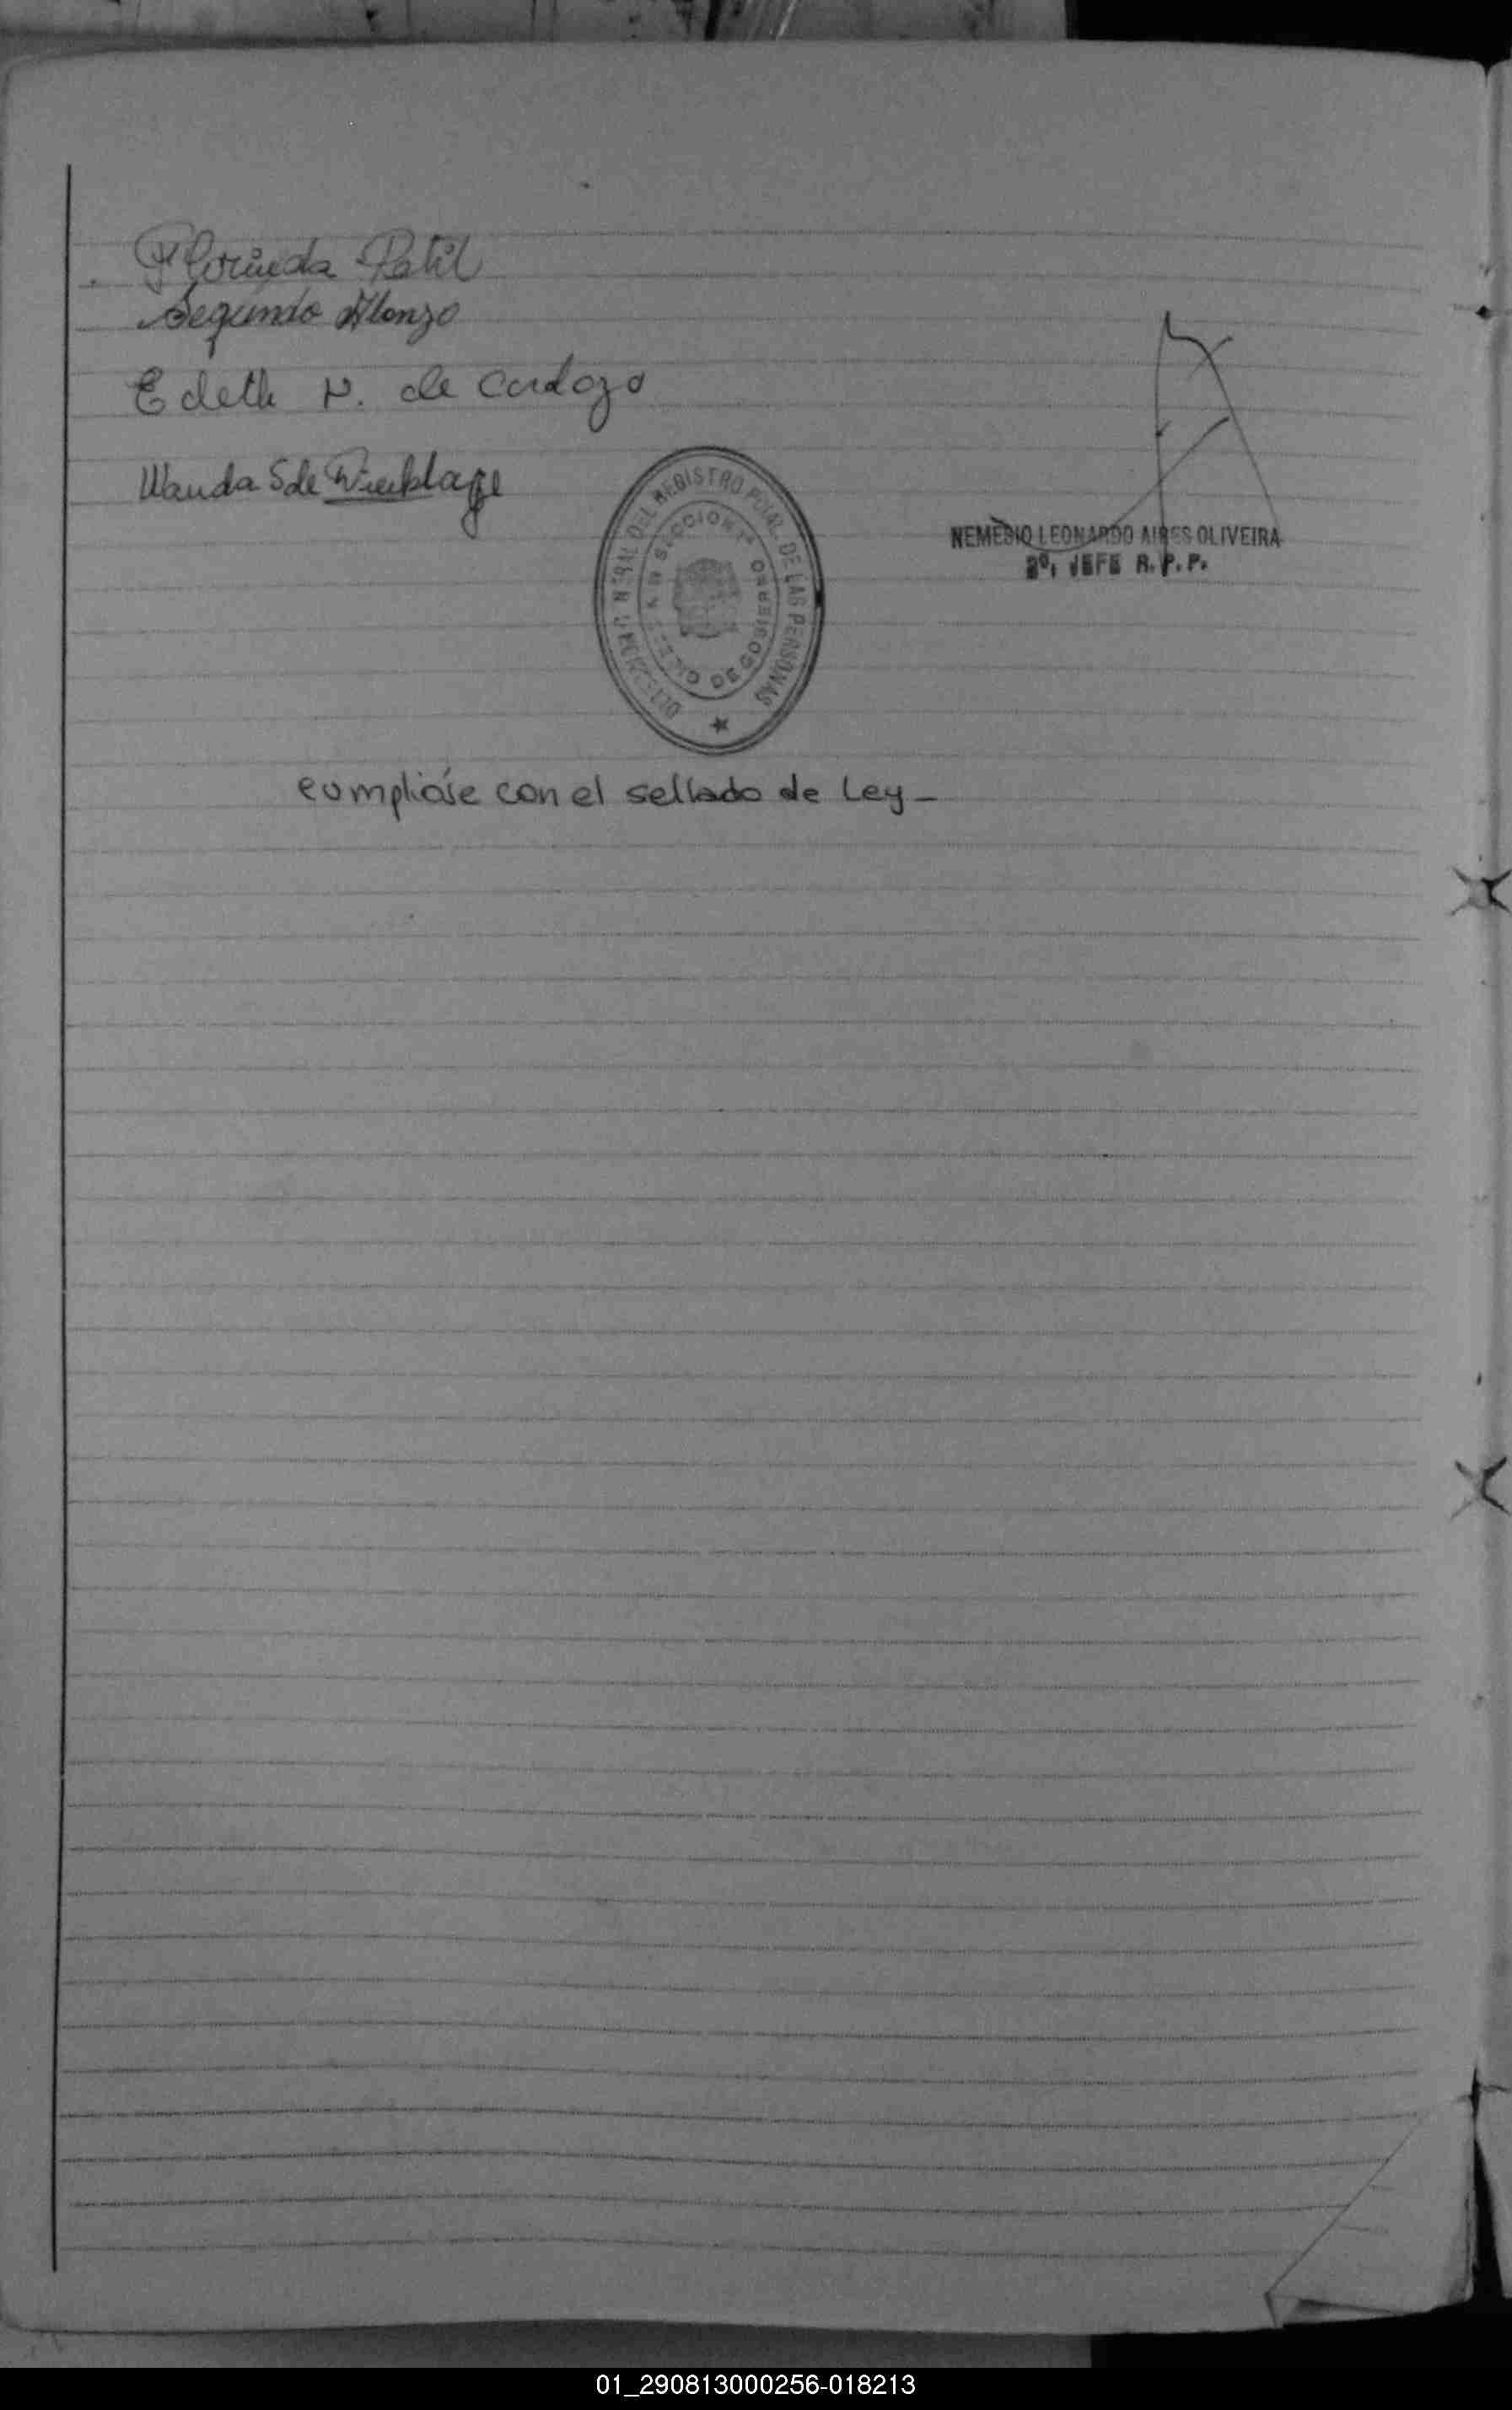 Florinda Patil
Segundo Alonzo
Edeth N. de Cardozo
Wanda S de
DEL REGISTRO PCIAL. DE LAS PERSONAS
SECCION 1ª
DE GOBIERNO
NEMESIO LEONARDO AIRES OLIVEIRA
2º, JEFE R. P. P.
cumplióse con el sellado de Ley_
01_290813000256-018213